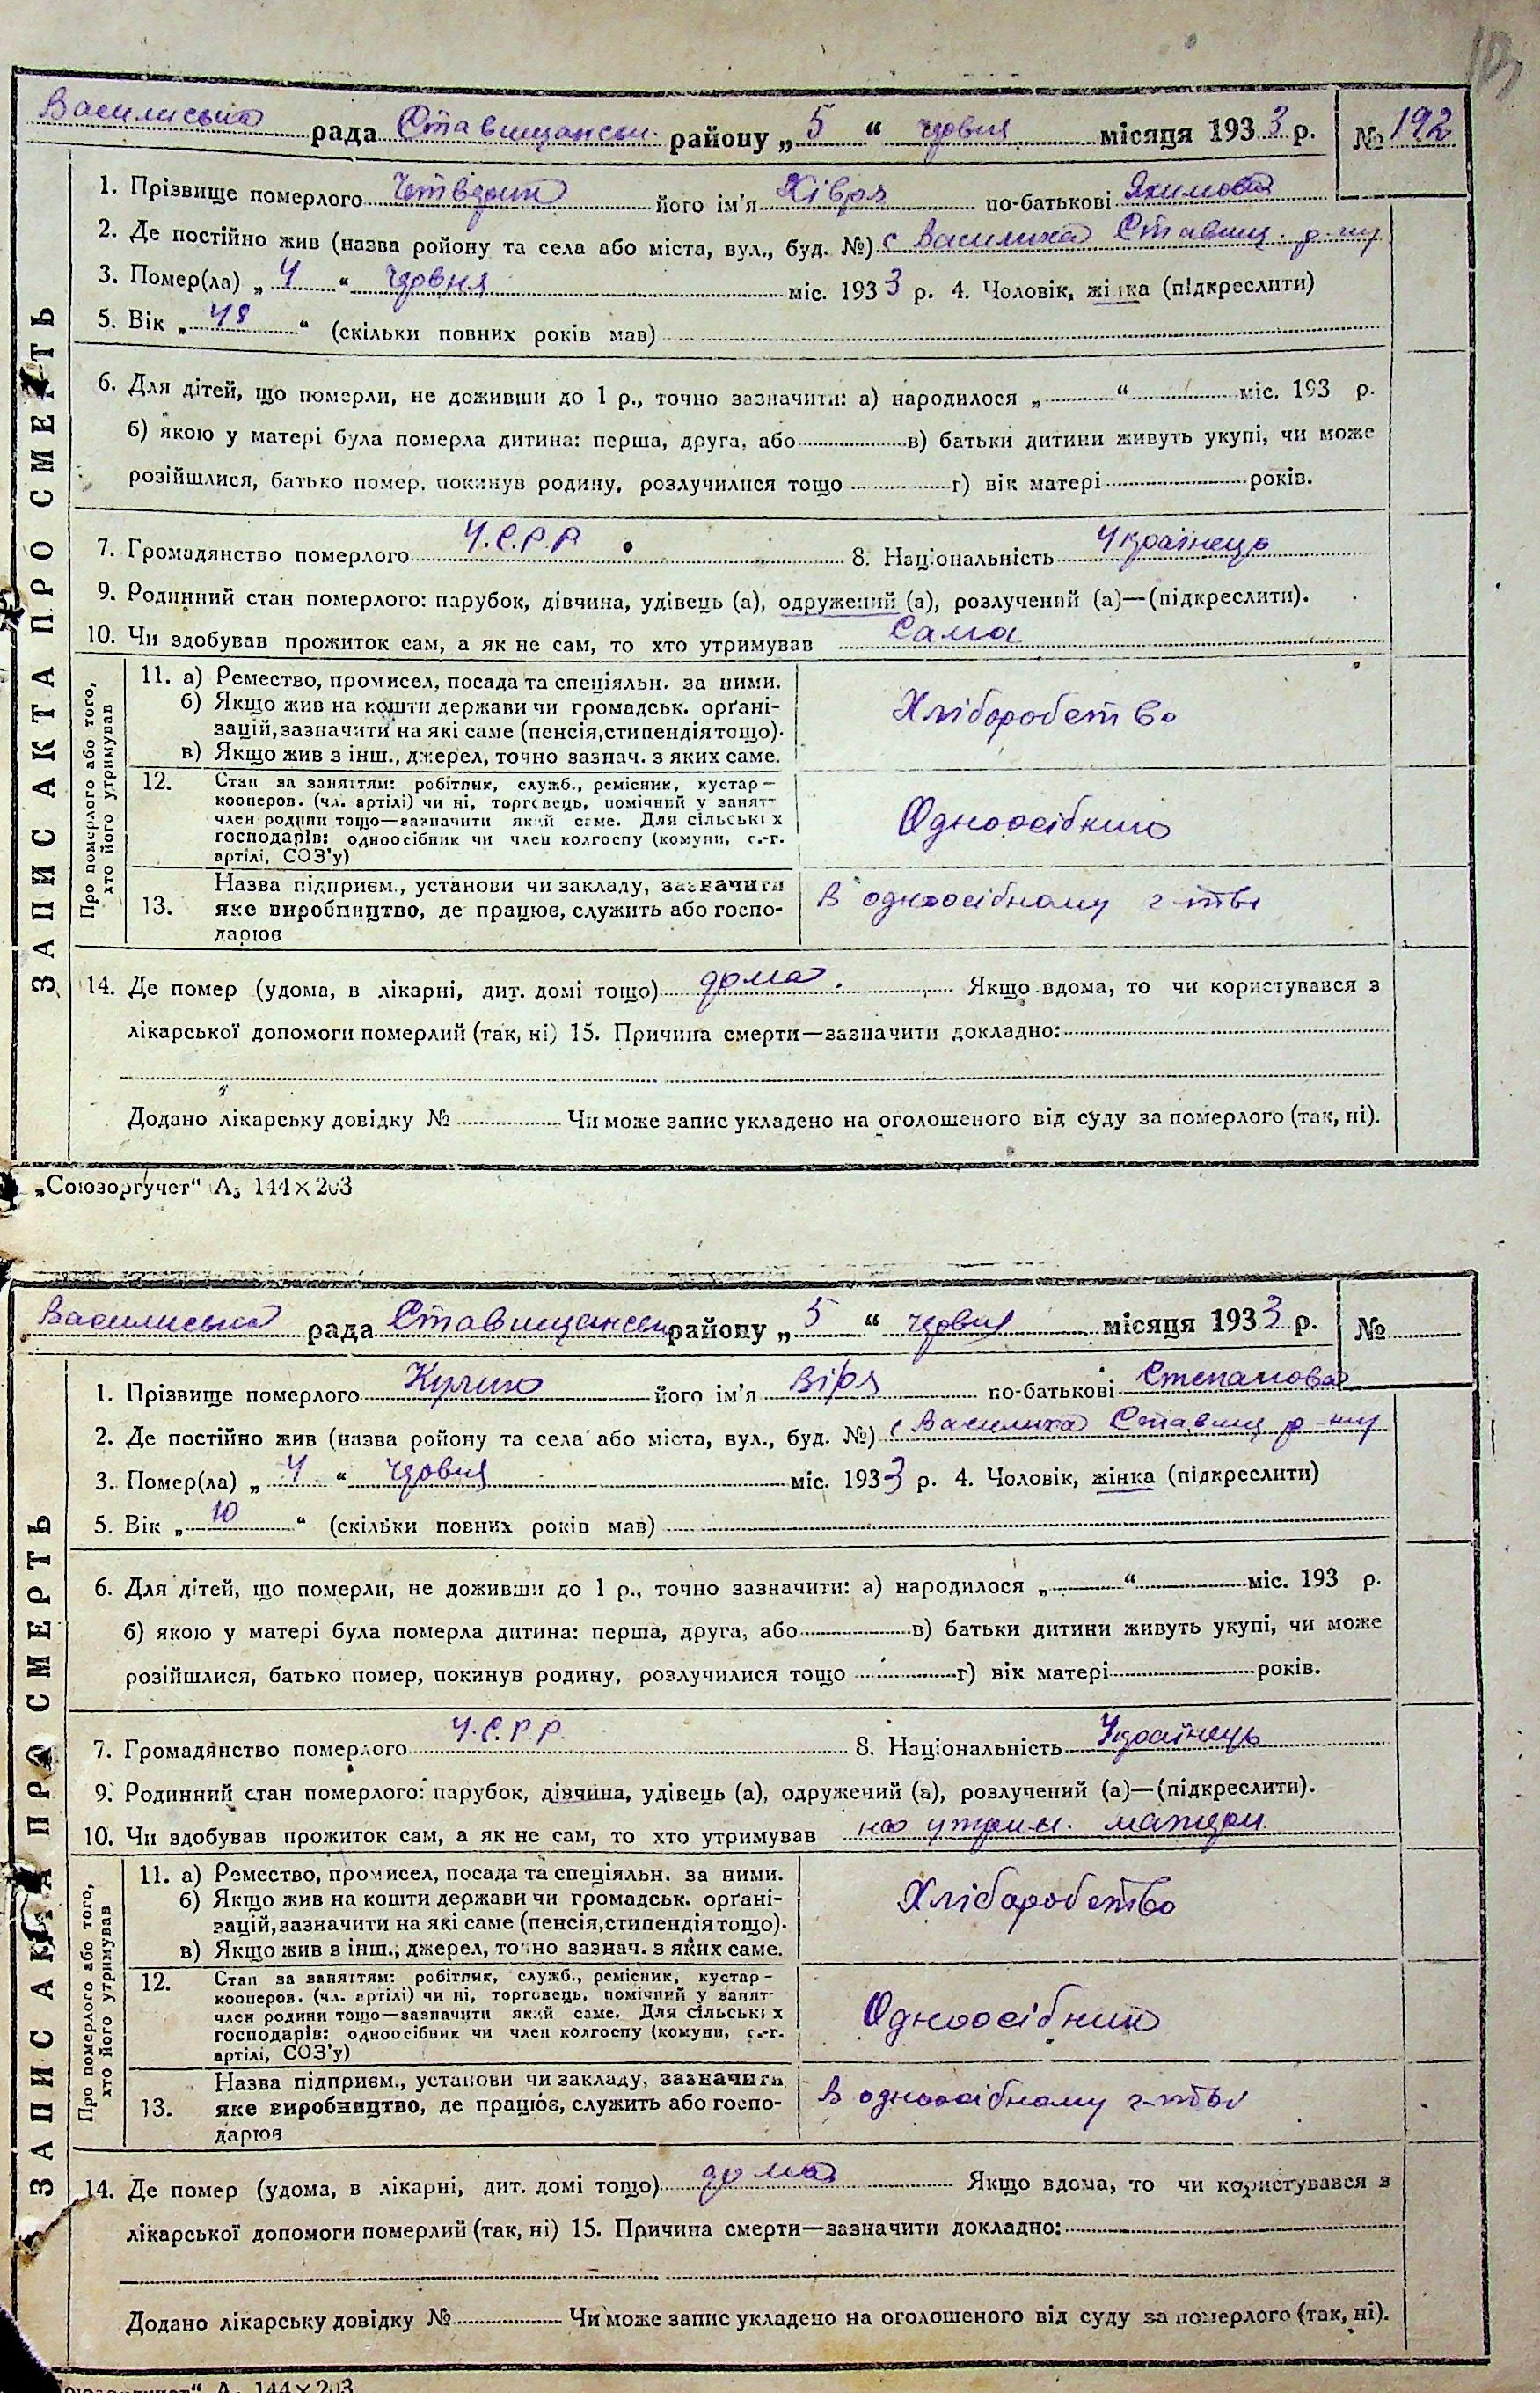 Василиська рада Ставищанськ. району „5“ червня місяця 1933 р. № 192
1. Прізвище померлого його ім'я Хівря по-батькові Якимовна
2. Де постійно жив (назва ройону та села або міста, вул., буд. №) с Василиха Ставищ. р-ну
3. Помер(ла) „4“ червня міс. 1933 р. 4. Чоловік, жінка (підкреслити)
5. Вік „48“ (скільки повних років мав)
6. Для дітей, що померли, не доживши до 1 р., точно зазначити: а) народилося „ “ міс. 193 р.
б) якою у матері була померла дитина: перша, друга, або в) батьки дитини живуть укупі, чи може
розійшлися, батько помер, покинув родину, розлучилися тощо г) вік матері років.
7. Громадянство померлого У.С.Р.Р. 8. Національність Українець
9. Родинний стан померлого: парубок, дівчина, удівець (а), одружений (а), розлучений (а)—(підкреслити).
10. Чи здобував прожиток сам, а як не сам, то хто утримував Сама
ЗАПИС АКТА ПРО СМЕРТЬ
Про померлого або того, хто його утримував
11. а) Ремество, промисел, посада та спеціяльн. за ними.
б) Якщо жив на кошти держави чи громадськ. орґані-
зацій, зазначити на які саме (пенсія, стипендія тощо).
в) Якщо жив з інш., джерел, точно зазнач. з яких саме.
Хліборобство
12. Стан за заняттям: робітник, служб., ремісник, кустар—
кооперов. (чл. артілі) чи ні, торговець, помічний у занят-
член родини тощо—зазначити який саме. Для сільських
господарів: одноосібник чи член колгоспу (комуни, с.-г.
артілі, СОЗ'у)
Одноосібник
13. Назва підприєм., установи чи закладу, зазначити
яке виробництво, де працює, служить або госпо-
дарює
В одноосібному г-тві
14. Де помер (удома, в лікарні, дит. домі тощо) дома. Якщо вдома, то чи користувався з
лікарської допомоги померлий (так, ні) 15. Причина смерти—зазначити докладно:
Додано лікарську довідку № Чи може запис укладено на оголошеного від суду за померлого (так, ні).
„Союзоргучет“ А5 144×203
Василиська рада Ставищанськ району „5“ червня місяця 1933 р. №
1. Прізвище померлого Кулик його ім'я Віра по-батькові Степановна
2. Де постійно жив (назва ройону та села або міста, вул., буд. №) с Василиха Ставищ р-ну
3. Помер(ла) „4“ червня міс. 1933 р. 4. Чоловік, жінка (підкреслити)
5. Вік „10“ (скільки повних років мав)
6. Для дітей, що померли, не доживши до 1 р., точно зазначити: а) народилося „ “ міс. 193 р.
б) якою у матері була померла дитина: перша, друга, або в) батьки дитини живуть укупі, чи може
розійшлися, батько помер, покинув родину, розлучилися тощо г) вік матері років.
7. Громадянство померлого У.С.Р.Р. 8. Національність Українець
9. Родинний стан померлого: парубок, дівчина, удівець (а), одружений (а), розлучений (а)—(підкреслити).
10. Чи здобував прожиток сам, а як не сам, то хто утримував на утрим. матери
ЗАПИС АКТА ПРО СМЕРТЬ
Про померлого або того, хто його утримував
11. а) Ремество, промисел, посада та спеціяльн. за ними.
б) Якщо жив на кошти держави чи громадськ. орґані-
зацій, зазначити на які саме (пенсія, стипендія тощо).
в) Якщо жив з інш., джерел, точно зазнач. з яких саме.
Хліборобство
12. Стан за заняттям: робітник, служб., ремісник, кустар—
кооперов. (чл. артілі) чи ні, торговець, помічний у занят-
член родини тощо—зазначити який саме. Для сільських
господарів: одноосібник чи член колгоспу (комуни, с.-г.
артілі, СОЗ'у)
Одноосібник
13. Назва підприєм., установи чи закладу, зазначити
яке виробництво, де працює, служить або госпо-
дарює
В одноосібному г-тві
14. Де помер (удома, в лікарні, дит. домі тощо) дома Якщо вдома, то чи користувався з
лікарської допомоги померлий (так, ні) 15. Причина смерти—зазначити докладно:
Додано лікарську довідку № Чи може запис укладено на оголошеного від суду за померлого (так, ні).
144×203